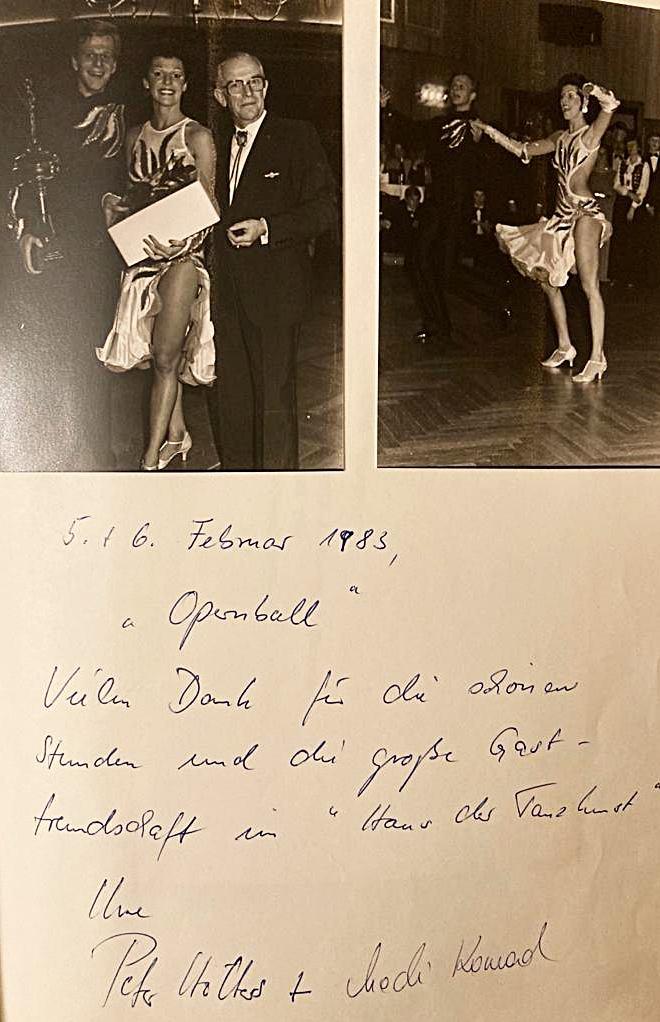 5. + 6. Februar 1983,
„ Opernball "
Vielen Dank für die schönen
Stunden und die große Gast-
freundschaft im "Haus der Tanzkunst"
Ihre
Peter + Heidi Konrad